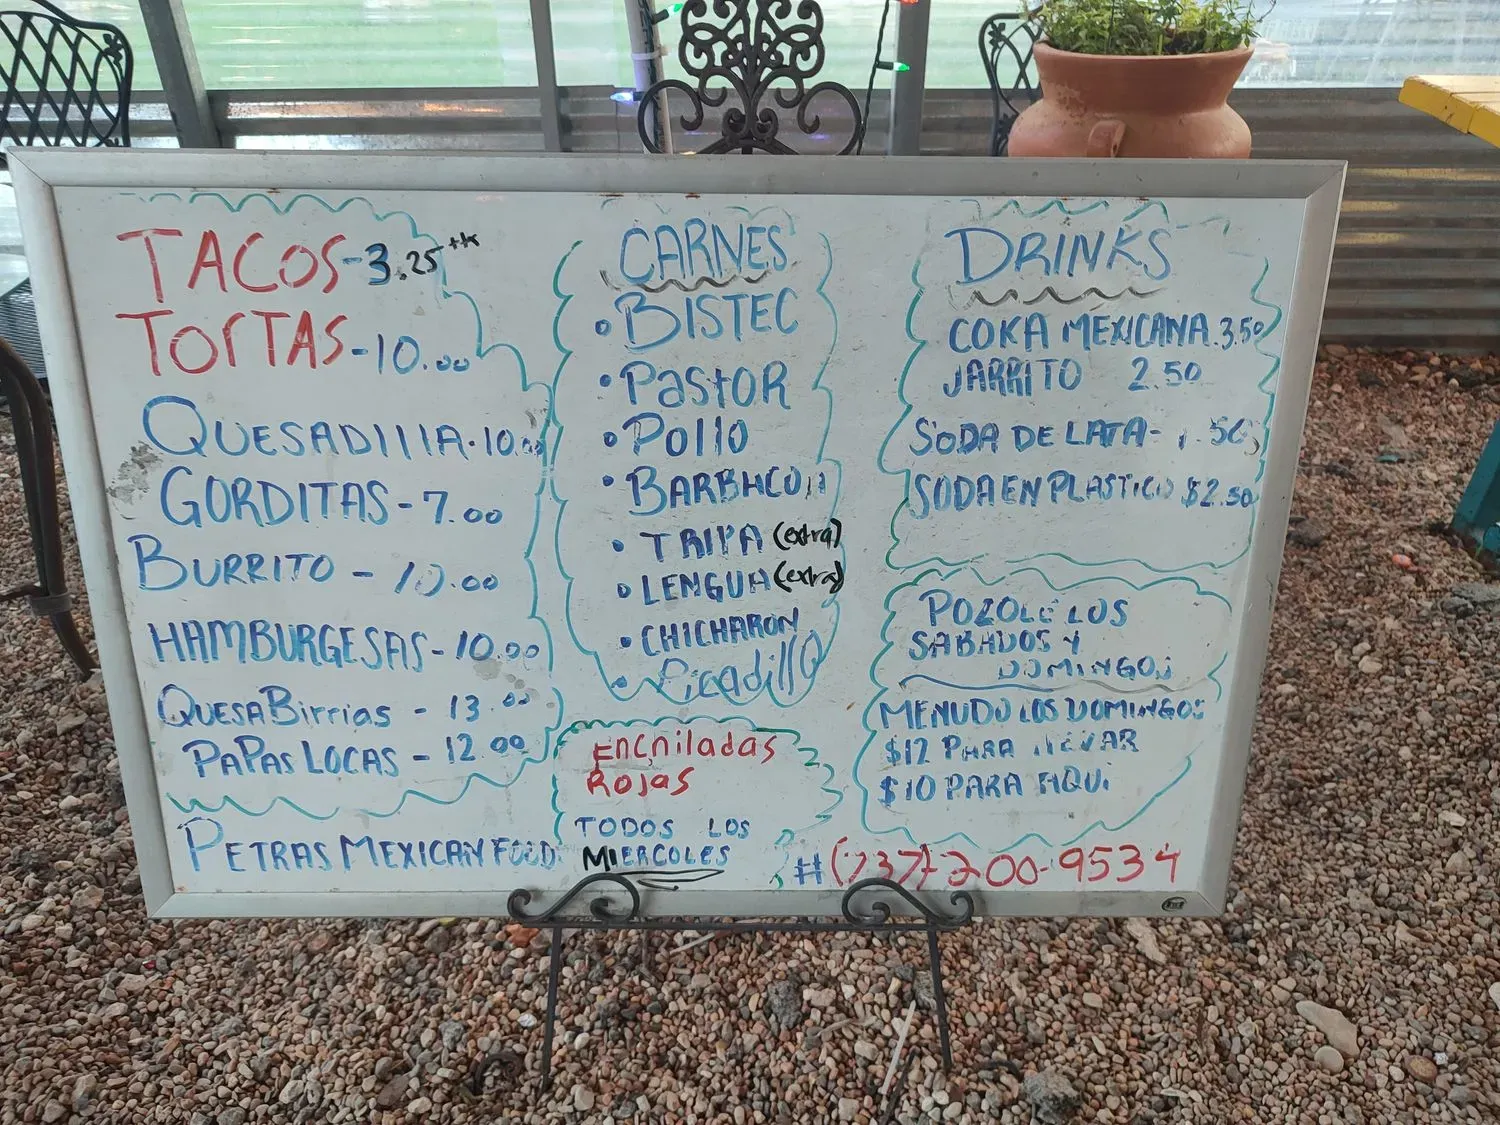 TACOS - 3.25
TORTAS - 10.00
QUESADIllA - 10.00
GORDITAS - 7.00
BURRITO - 10.00
HAMBURGESAS - 10.00
QUESABirrias - 13.00
PAPAS LOCAS - 12.00
PETRAS MEXICAN FOOD
CARNES
• BISTEC
• PAStOR
• POllO
• BARBACOA
• TRIPA (extra)
• LENGUA (extra)
• CHICHARON
• Picadillo
ENChiladas
ROJAS
TODOS LOS
MIERCOLES
DRINKS
COKA MEXICANA. 3.50
JARRITO 2.50
SODA DE LATA - 1.50
SODA EN PLASTICO $2.50
POZOLE LOS
SABADOS Y
DOMINGOS
MENUDO LOS DOMINGOS
$12 PARA llEVAR
$10 PARA AQUi
# (737)-200-9534